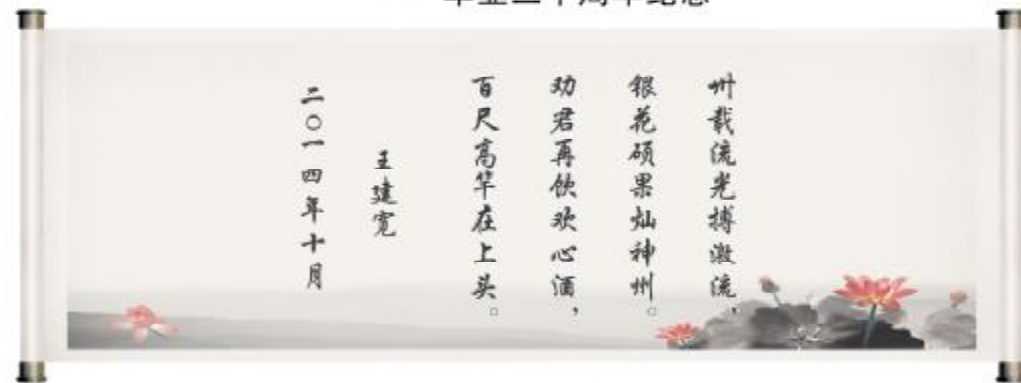 毕业三十周年纪念
卅载流光搏激流，
银花硕果灿神州。
劝君再饮欢心酒，
百尺高竿在上头。
王建宽
二〇一四年十月